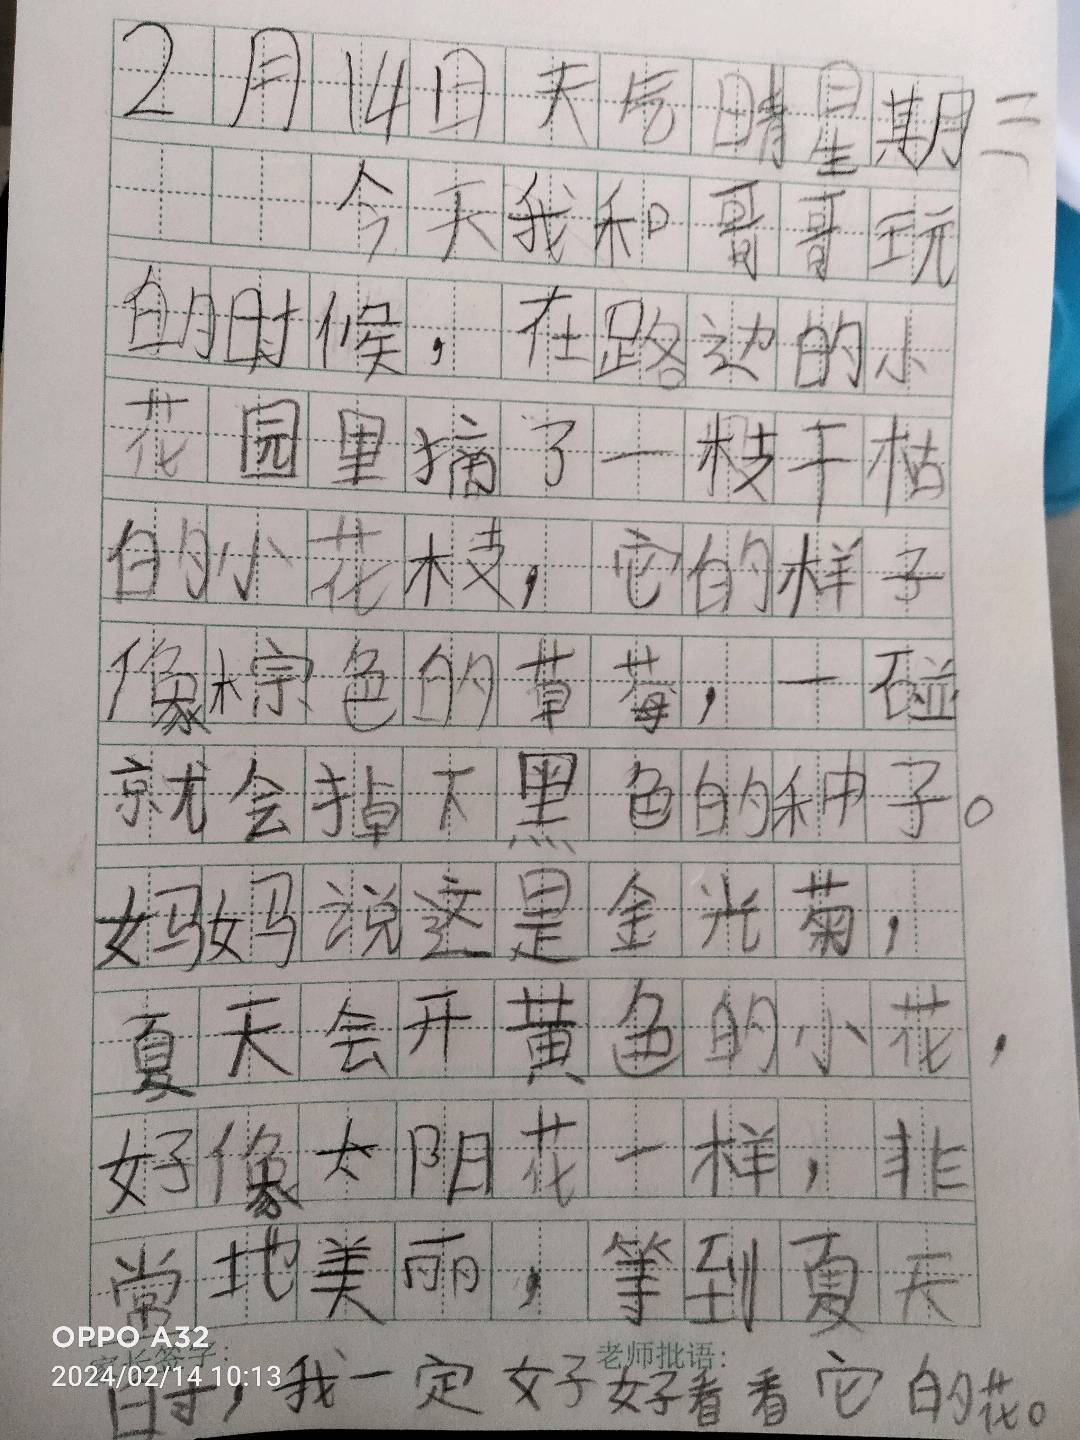 2月14日天气晴星期三
今天我和哥哥玩
的时候，在路边的小
花园里摘了一枝干枯
的小花枝，它的样子
像棕色的草莓，一碰
就会掉下黑色的种子。
妈妈说这是金光菊，
夏天会开黄色的小花，
好像太阳花一样，非
常地美丽，等到夏天
家长签字：
老师批语：
时，我一定好好看看它的花。
OPPO A32
2024/02/14 10:13